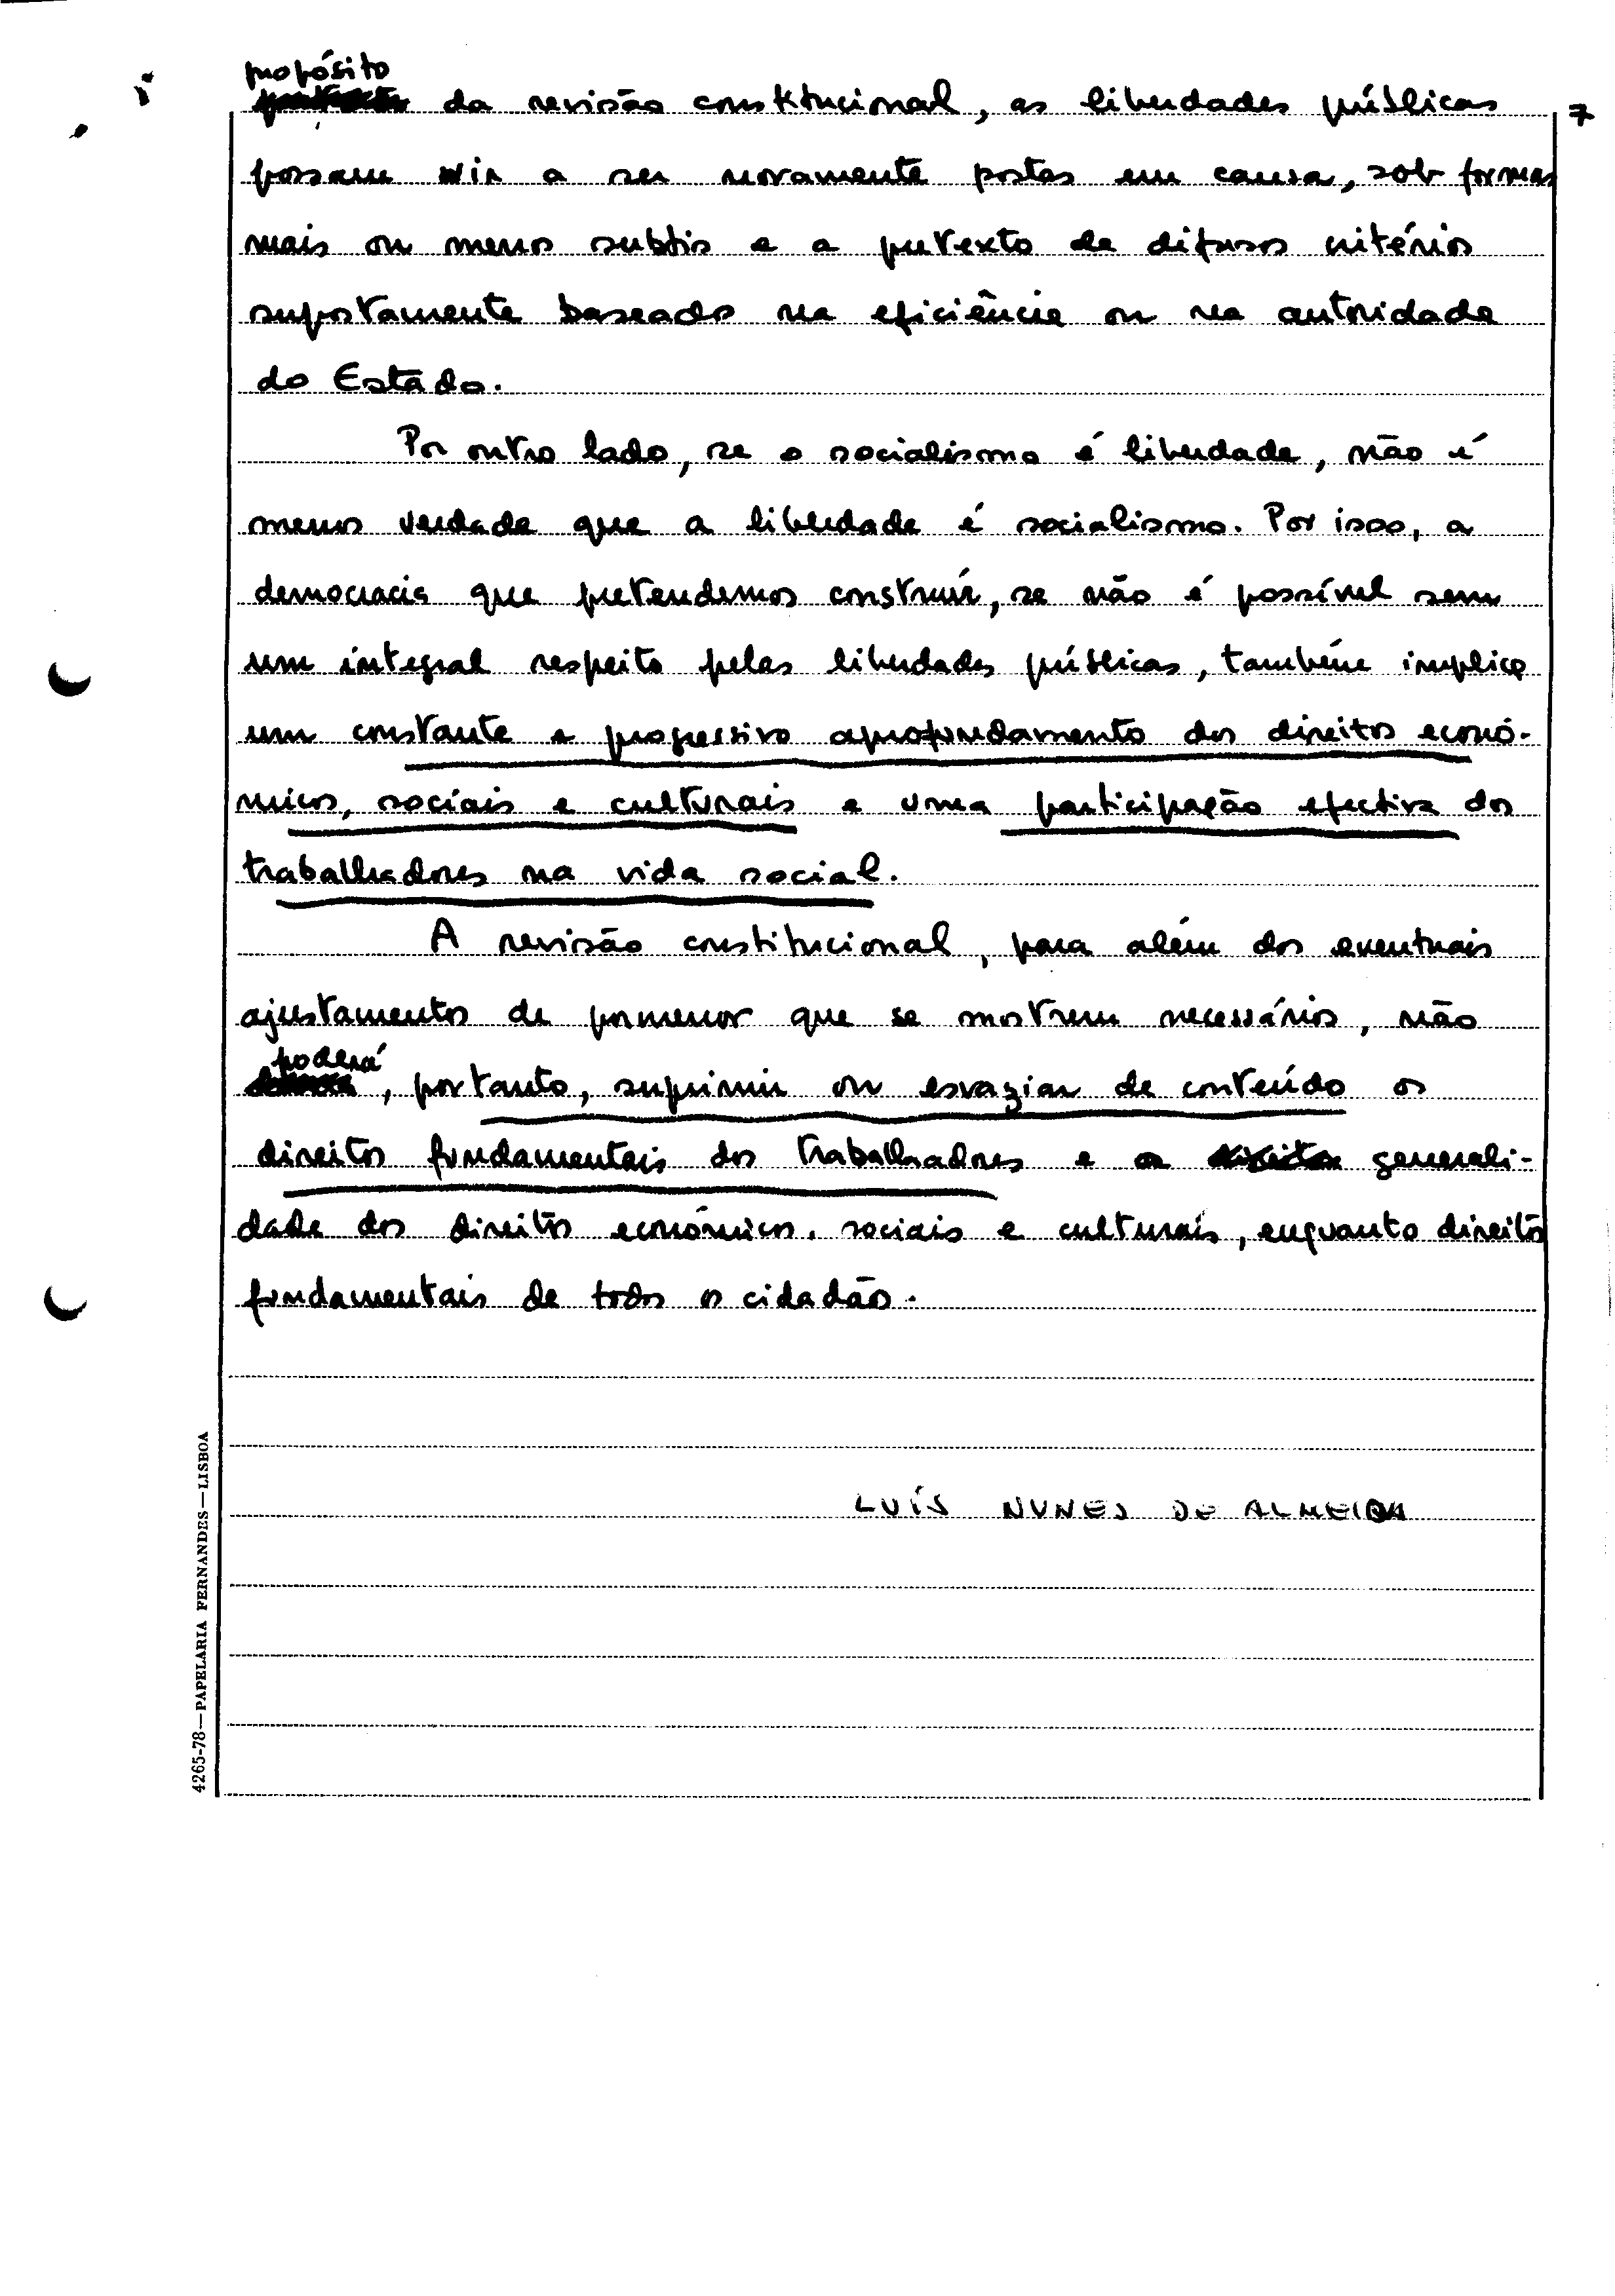 propósito
da revisão constitucional, as liberdades públicas 7
possam vir a ser novamente postas em causa, sob formas
mais ou menos subtis e a pretexto de difusos critérios
supostamente baseados na eficiência ou na autoridade
do Estado.
Por outro lado, se o socialismo é liberdade, não é
menos verdade que a liberdade é socialismo. Por isso, a
democracia que pretendemos construir, se não é possível sem
um integral respeito pelas liberdades públicas, também implica
um constante e progressivo aprofundamento dos direitos econó-
micos, sociais e culturais e uma participação efectiva dos
trabalhadores na vida social.
A revisão constitucional, para além dos eventuais
ajustamentos de pormenor que se mostrem necessários, não
poderá
, portanto, suprimir ou esvaziar de conteúdo os
direitos fundamentais dos trabalhadores e a generali-
dade dos direitos económicos, sociais e culturais, enquanto direitos
fundamentais de todos os cidadãos.
LUÍS NUNES DE ALMEIDA
4265-78—PAPELARIA FERNANDES—LISBOA